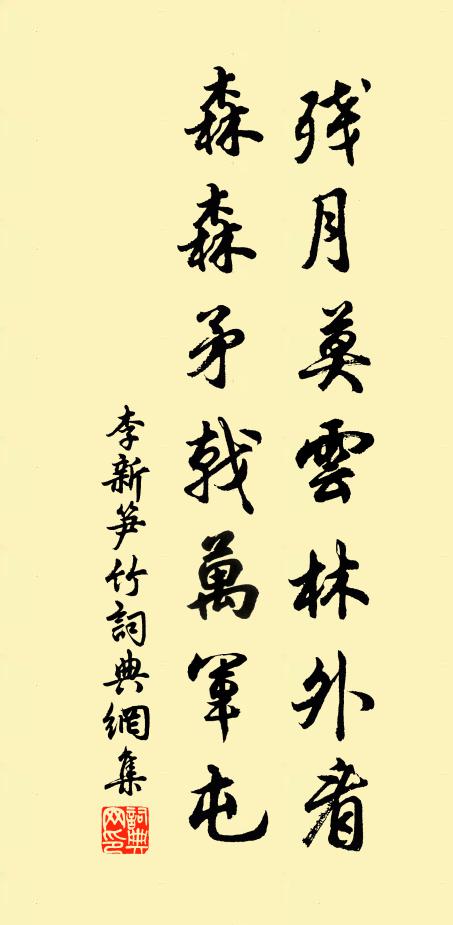 残月莫雲林外看
森森矛戟萬軍屯
李新笋竹詞典網集
詞典網印